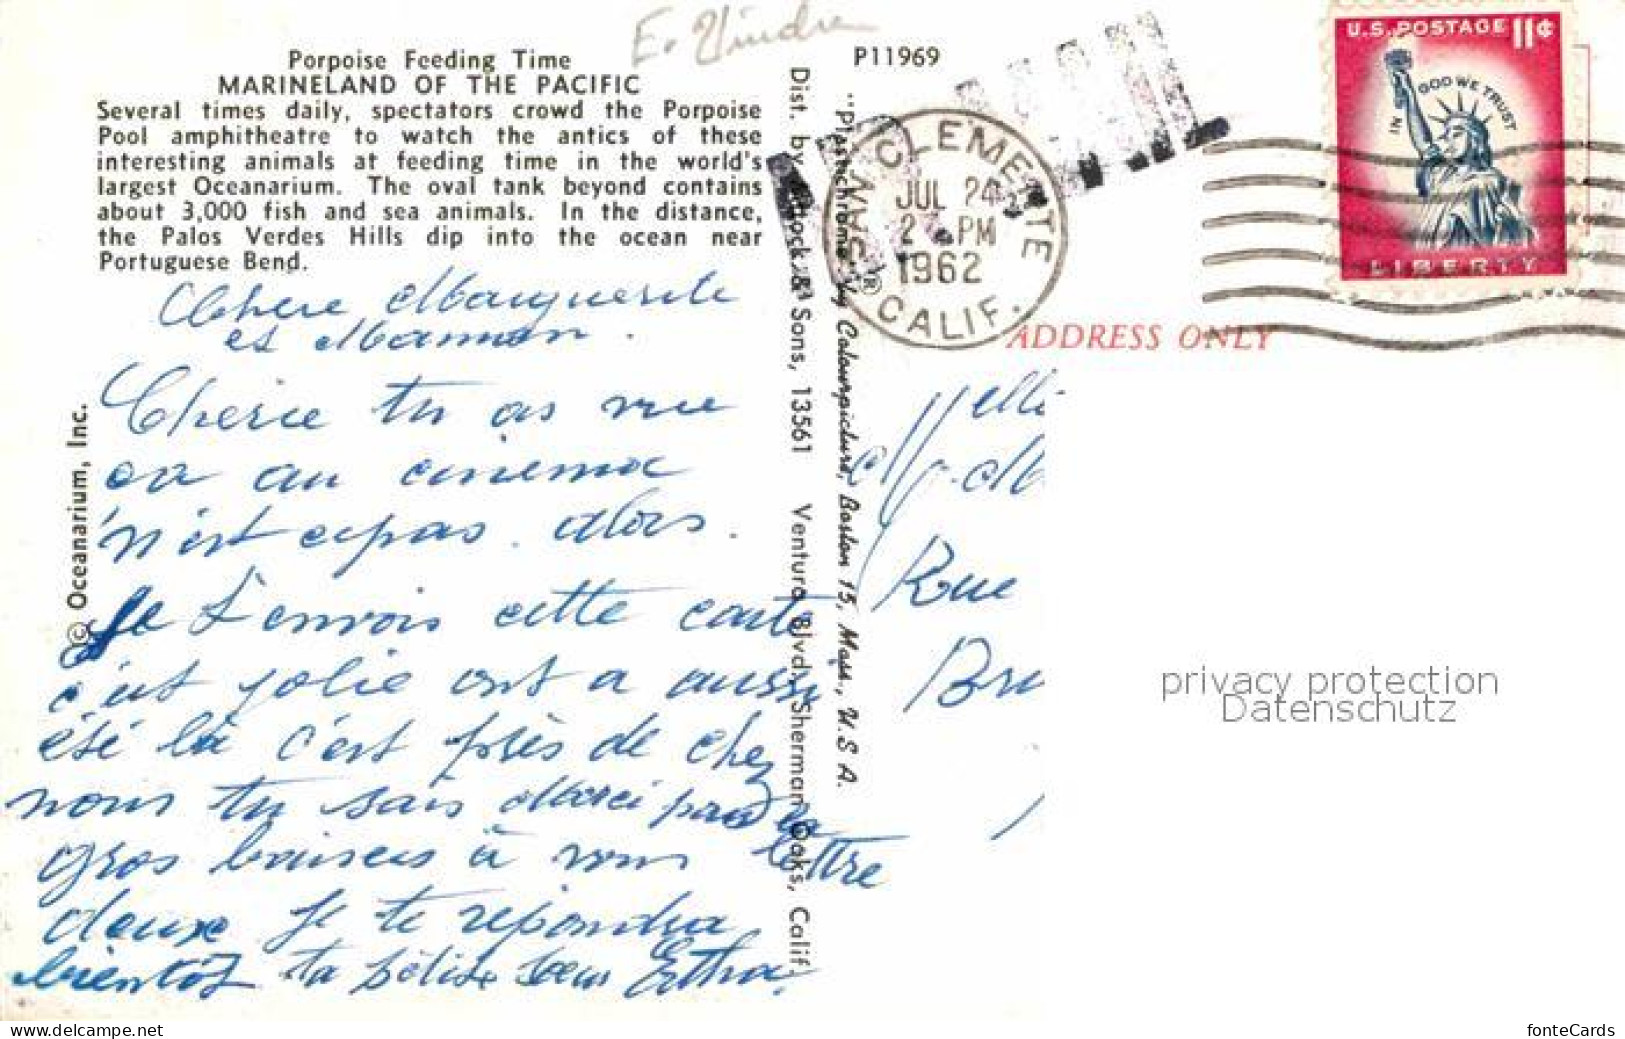 E. Vindre
Porpoise Feeding Time
MARINELAND OF THE PACIFIC
Several times daily, spectators crowd the Porpoise
Pool amphitheatre to watch the antics of these
interesting animals at feeding time in the world's
largest Oceanarium. The oval tank beyond contains
about 3,000 fish and sea animals. In the distance,
the Palos Verdes Hills dip into the ocean near
Portuguese Bend.
© Oceanarium, Inc.
Chere Marguerite
et Maman.
Cherie tu as vue
ca au cinema
n'est cepas. alors.
Je t'envois cette carte
c'est jolie ont a aussi
été là c'est près de chez
nous tu sais Merci pour ta
lettre
gros baisers à vous
deux Je te repondra
bientôt ta petite soeur
Dist. by & Sons, 13561 Ventura Blvd., Sherman Oaks, Calif.
"Plastichrome" ® by Colourpicture, Boston 15, Mass., U.S.A.
P11969
SAN CLEMENTE
JUL 24
2 PM
1962
CALIF.
U.S. POSTAGE 11¢
IN GOD WE TRUST
LIBERTY
ADDRESS ONLY
Rue
privacy protection
Datenschutz
www.delcampe.net
fonteCards